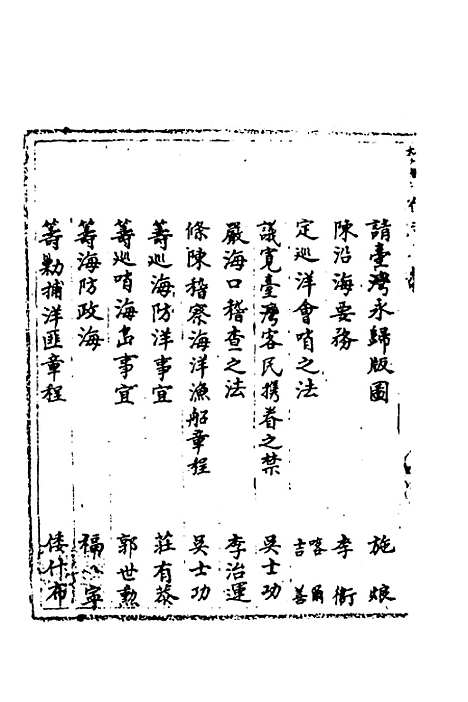 請臺灣永歸版圖 施 烺
陳沿海要務 李 衛
定巡洋會哨之法 喀爾吉善
議寬臺灣客民携眷之禁 吳士功
嚴海口稽查之法 李治運
條陳稽察海洋漁船章程 吳士功
籌巡海防洋事宜 莊有恭
籌巡哨海島事宜 郭世勲
籌海防政海 福 寧
籌勦捕洋匪章程 倭什布